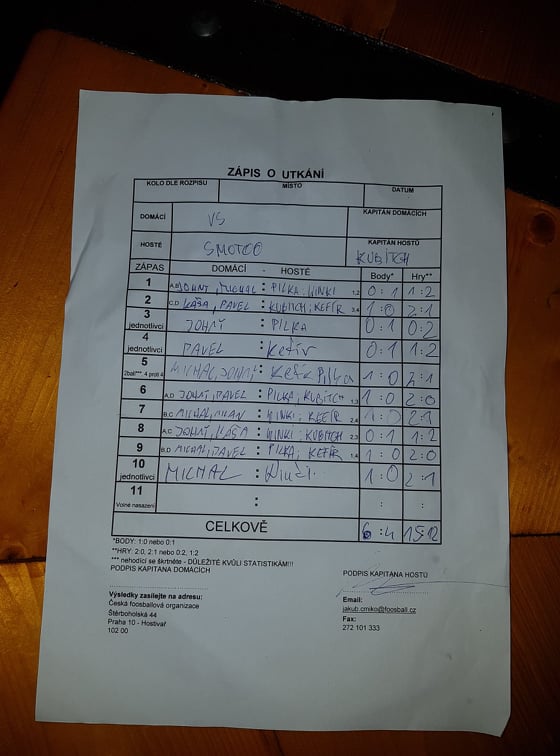 ZÁPIS O UTKÁNÍ
KOLO DLE ROZPISU MÍSTO DATUM
DOMÁCÍ VS KAPITÁN DOMÁCÍCH
HOSTÉ SMOTOO KAPITÁN HOSTŮ KUBITCH
ZÁPAS DOMÁCÍ - HOSTÉ Body* Hry**
1 A,B JOHNY, MICHAL : PILKA, WINKI 1,2 0:1 1:2
2 C,D KÁŠA, PAVEL : KUBITCH, KEFÍR 3,4 1:0 2:1
3 jednotlivci JOHNY : PILKA 0:1 0:2
4 jednotlivci PAVEL : Kefír 0:1 1:2
5 2ball***, 4 proti 4 MICHAL, JOHNY : Kefír Pilka 1:0 2:1
6 A,D JOHNY, PAVEL : PILKA, KUBITCH 1,3 1:0 2:0
7 B,C MICHAL, MILAN : WINKI, KEFÍR 2,4 1:0 2:1
8 A,C JOHNY, KÁŠA : WINKI, KUBITCH 2,3 0:1 1:2
9 B,D MICHAL, PAVEL : PILKA, KEFÍR 1,4 1:0 2:0
10 jednotlivci MICHAL : 1:0 2:1
11 Volné nasazení : : :
CELKOVĚ 6:4 15:12
*BODY: 1:0 nebo 0:1
**HRY: 2:0, 2:1 nebo 0:2, 1:2
*** nehodící se škrtněte - DŮLEŽITÉ KVŮLI STATISTIKÁM!!!
PODPIS KAPITÁNA DOMÁCÍCH PODPIS KAPITÁNA HOSTŮ
Výsledky zasílejte na adresu:
Česká foosballová organizace
Štěrboholská 44
Praha 10 - Hostivař
102 00
Email:
jakub.crniko@foosball.cz
Fax:
272 101 333